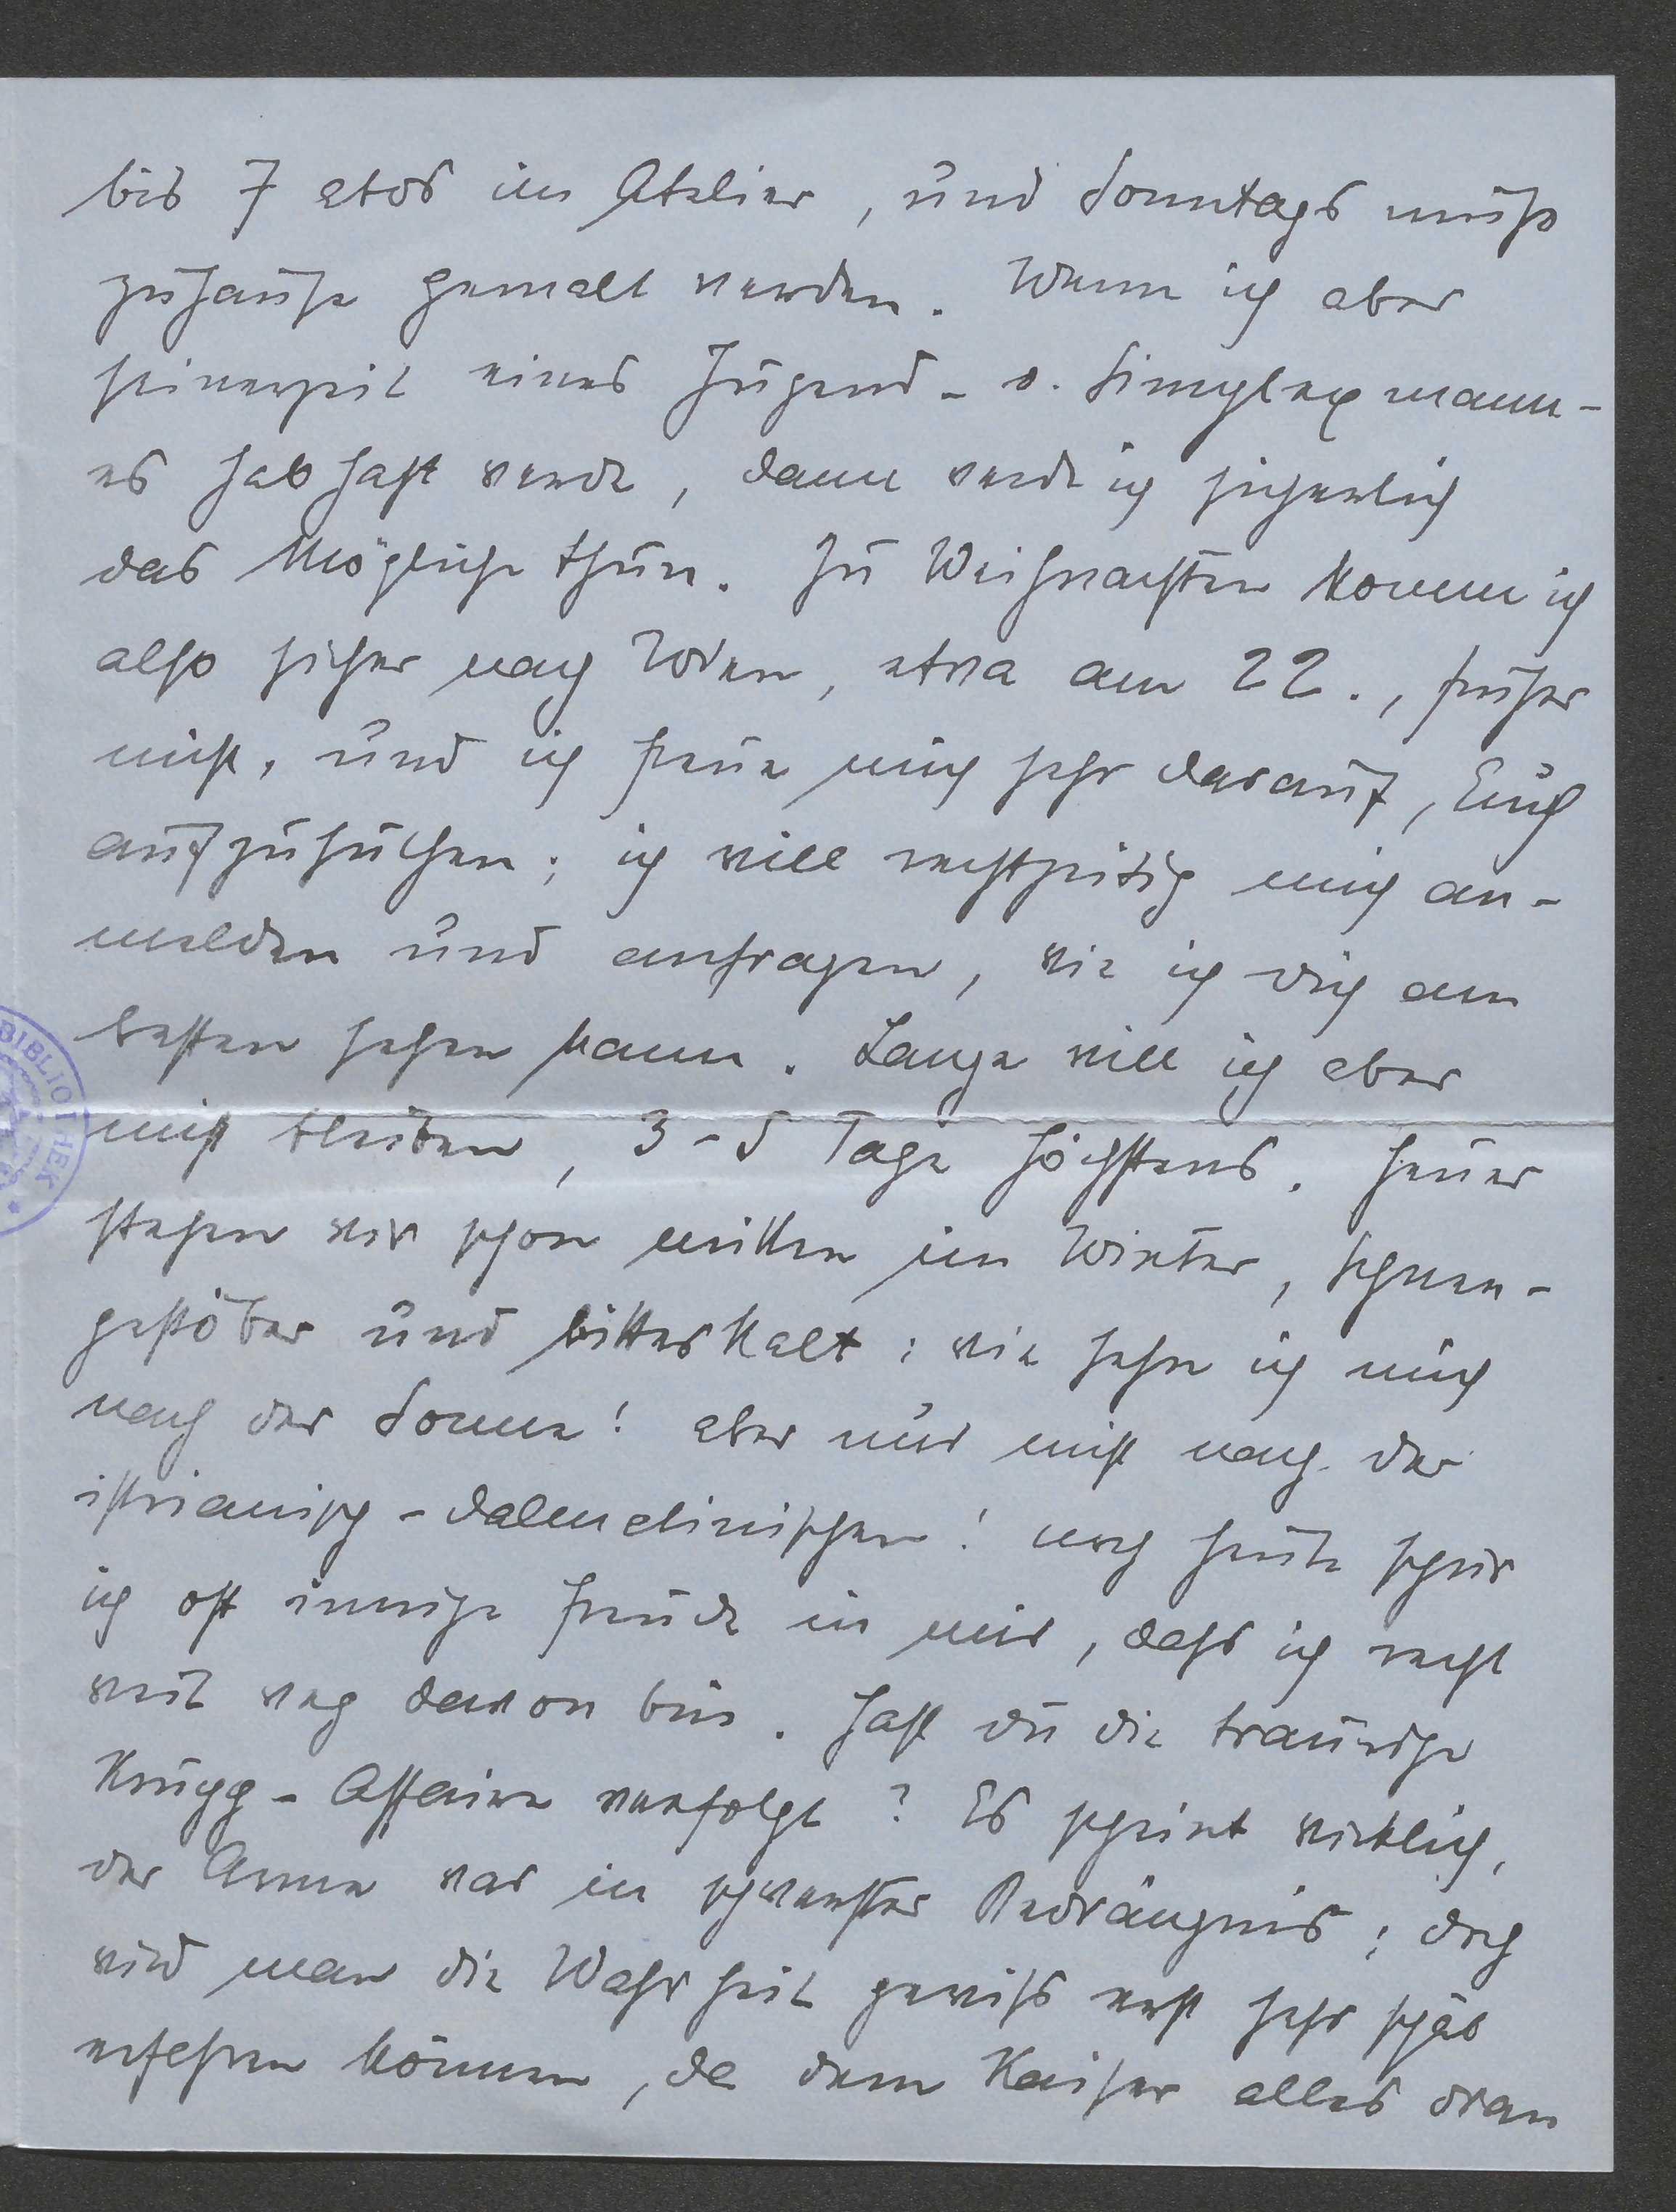 bis 7 etws im Atelier, und Sonntags muß
zuhause gemalt werden. Wenn ich aber
seinerzeit eines Jugend- o. Simplexmann-
es habhaft werde, dann werde ich sicherlich
das Mögliche thun. Zu Weihnachten komm ich
also sicher nach Wien, etwa am 22., früher
nicht, und ich freue mich sehr darauf, Euch
aufzusuchen; ich will rechtzeitig mich an-
melden und anfragen, wie ich dich am
besten sehen kann. Lange will ich aber
nicht bleiben, 3-5 Tage höchstens. Heuer
stehen wir schon mitten im Winter, Schnee-
gestöber und bitterkalt; wie sehn ich mich
nach der Sonne! aber nur nicht nach der
istrianisch-dalmatinischen! noch heute spür
ich oft innige Freude in mir, dass ich recht
weit weg davon bin. Hast du die traurige
Krupp-Affaire verfolgt? Es scheint wirklich,
der Arme war in schwerster Bedrängnis; doch
wird man die Wahrheit gewiss erst sehr spät
erfahren können, da dem Kaiser alles dran
BIBLIOTHEK